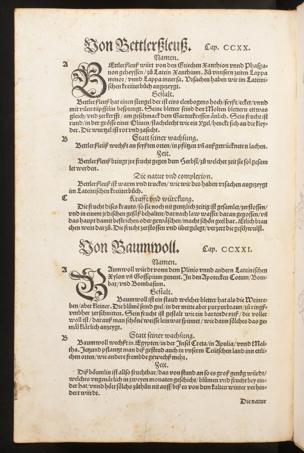 Von Bettlerßleuß. Cap. CCXX.
Namen.
A Bettlerßleuß würt von den Griechen Xanthion vnnd Phasga-
non geheyssen / zů Latein Xanthium. Zů vnsern zeiten Lappa
minor / vnnd Lappa inuersa. Vrsachen haben wir im Latein-
ischen kreüterbůch angezeygt.
Gestalt.
Bettlerßleuß hat einen stengel der ist eins elenbogens hoch
mit vilen
gleich / vnd am geschmack dem Gartenkressen änlich. Sein frucht ist
rund / in der grösse einer Oliuen / stachelecht wie ein Ygel / henckt sich an die kley-
der. Die wurtzel ist rot vnd
Statt seiner wachsung.
B Bettlerßleiß wechßt an feyßten orten / in pfützen vñ außgetrückneten lachen.
Zeit.
Bettlerßleuß bringt jre frucht gegen dem Herbst / zů welcher zeit sie sol gesam-
let werden.
Die natur vnd complexion.
Bettlerßleuß ist warm vnd trucken / wie wir das haben vrsachen angezeygt
im Lateinischen kreüterbůch.
C Krafft vnd würckung.
Die frucht dises krauts / so sie noch nit gentzlich zeitig ist gesamlet / zerstossen /
vnd in einem jrdischen gefäß behalten / darnach law wasser daran gegossen / vñ
das haupt damit bestrichen oder gewäschen / macht schön geel har. Etlich thun
auch wein darzů. Die frucht zerstossen vnd übergelegt / verzert die geschwulst.
Von Baumwoll. Cap. CCXXI.
Namen.
A Baumwoll würdt vonn dem Plinio vnnd andern Lateinischen
Xylon vñ Gossipium genent. In den Apotecken Cotum / Bom-
bax / vnd Bombasum.
Gestalt.
Baumwoll ist ein staud welcher bletter hat als die Weinre-
ben / aber kleiner. Die blůmen seind geel / in der mitt aber purpurbraun /
Sein frucht ist gestalt wie ein bartende nuß / die voller
woll ist / darauß man schöne weisse leinwat spinnet / wie dann solches das ge-
mäl klärlich anzeygt.
Statt seiner wachsung.
B Baumwoll wechßt in Egypten / in der Insel Creta / in Apulia / vnnd Mal-
tha. Jetzund pflantzt man diß gestend auch in vnserm Teütschen land inn etli-
chen orten / wie andere frembde gewechß mehr.
Zeit.
Diß böumlin ist also fruchtbar / das von stund an so es groß genůg würdt /
welches vngeuärlich in zweyen monaten geschicht / blůmen vnd frucht bey ein-
ander hat / vnnd hört solchs zůthůn nit auff biß es von dem kalten winter verhin-
dert würdt.
Die natur